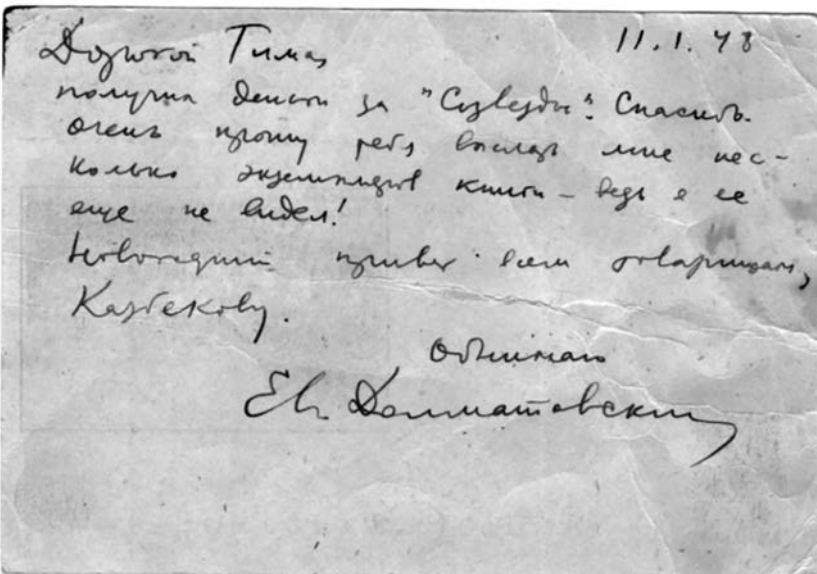 11.1.48
Дорогой Тимаш
получил деньги за "Созвездье". Спасибо.
Очень прошу тебя выслать мне нес-
колько экземпляров книги – ведь я ее
еще не видел!
Новогодний привет всем товарищам,
Казбекову.
Обнимаю
Евг Долматовский